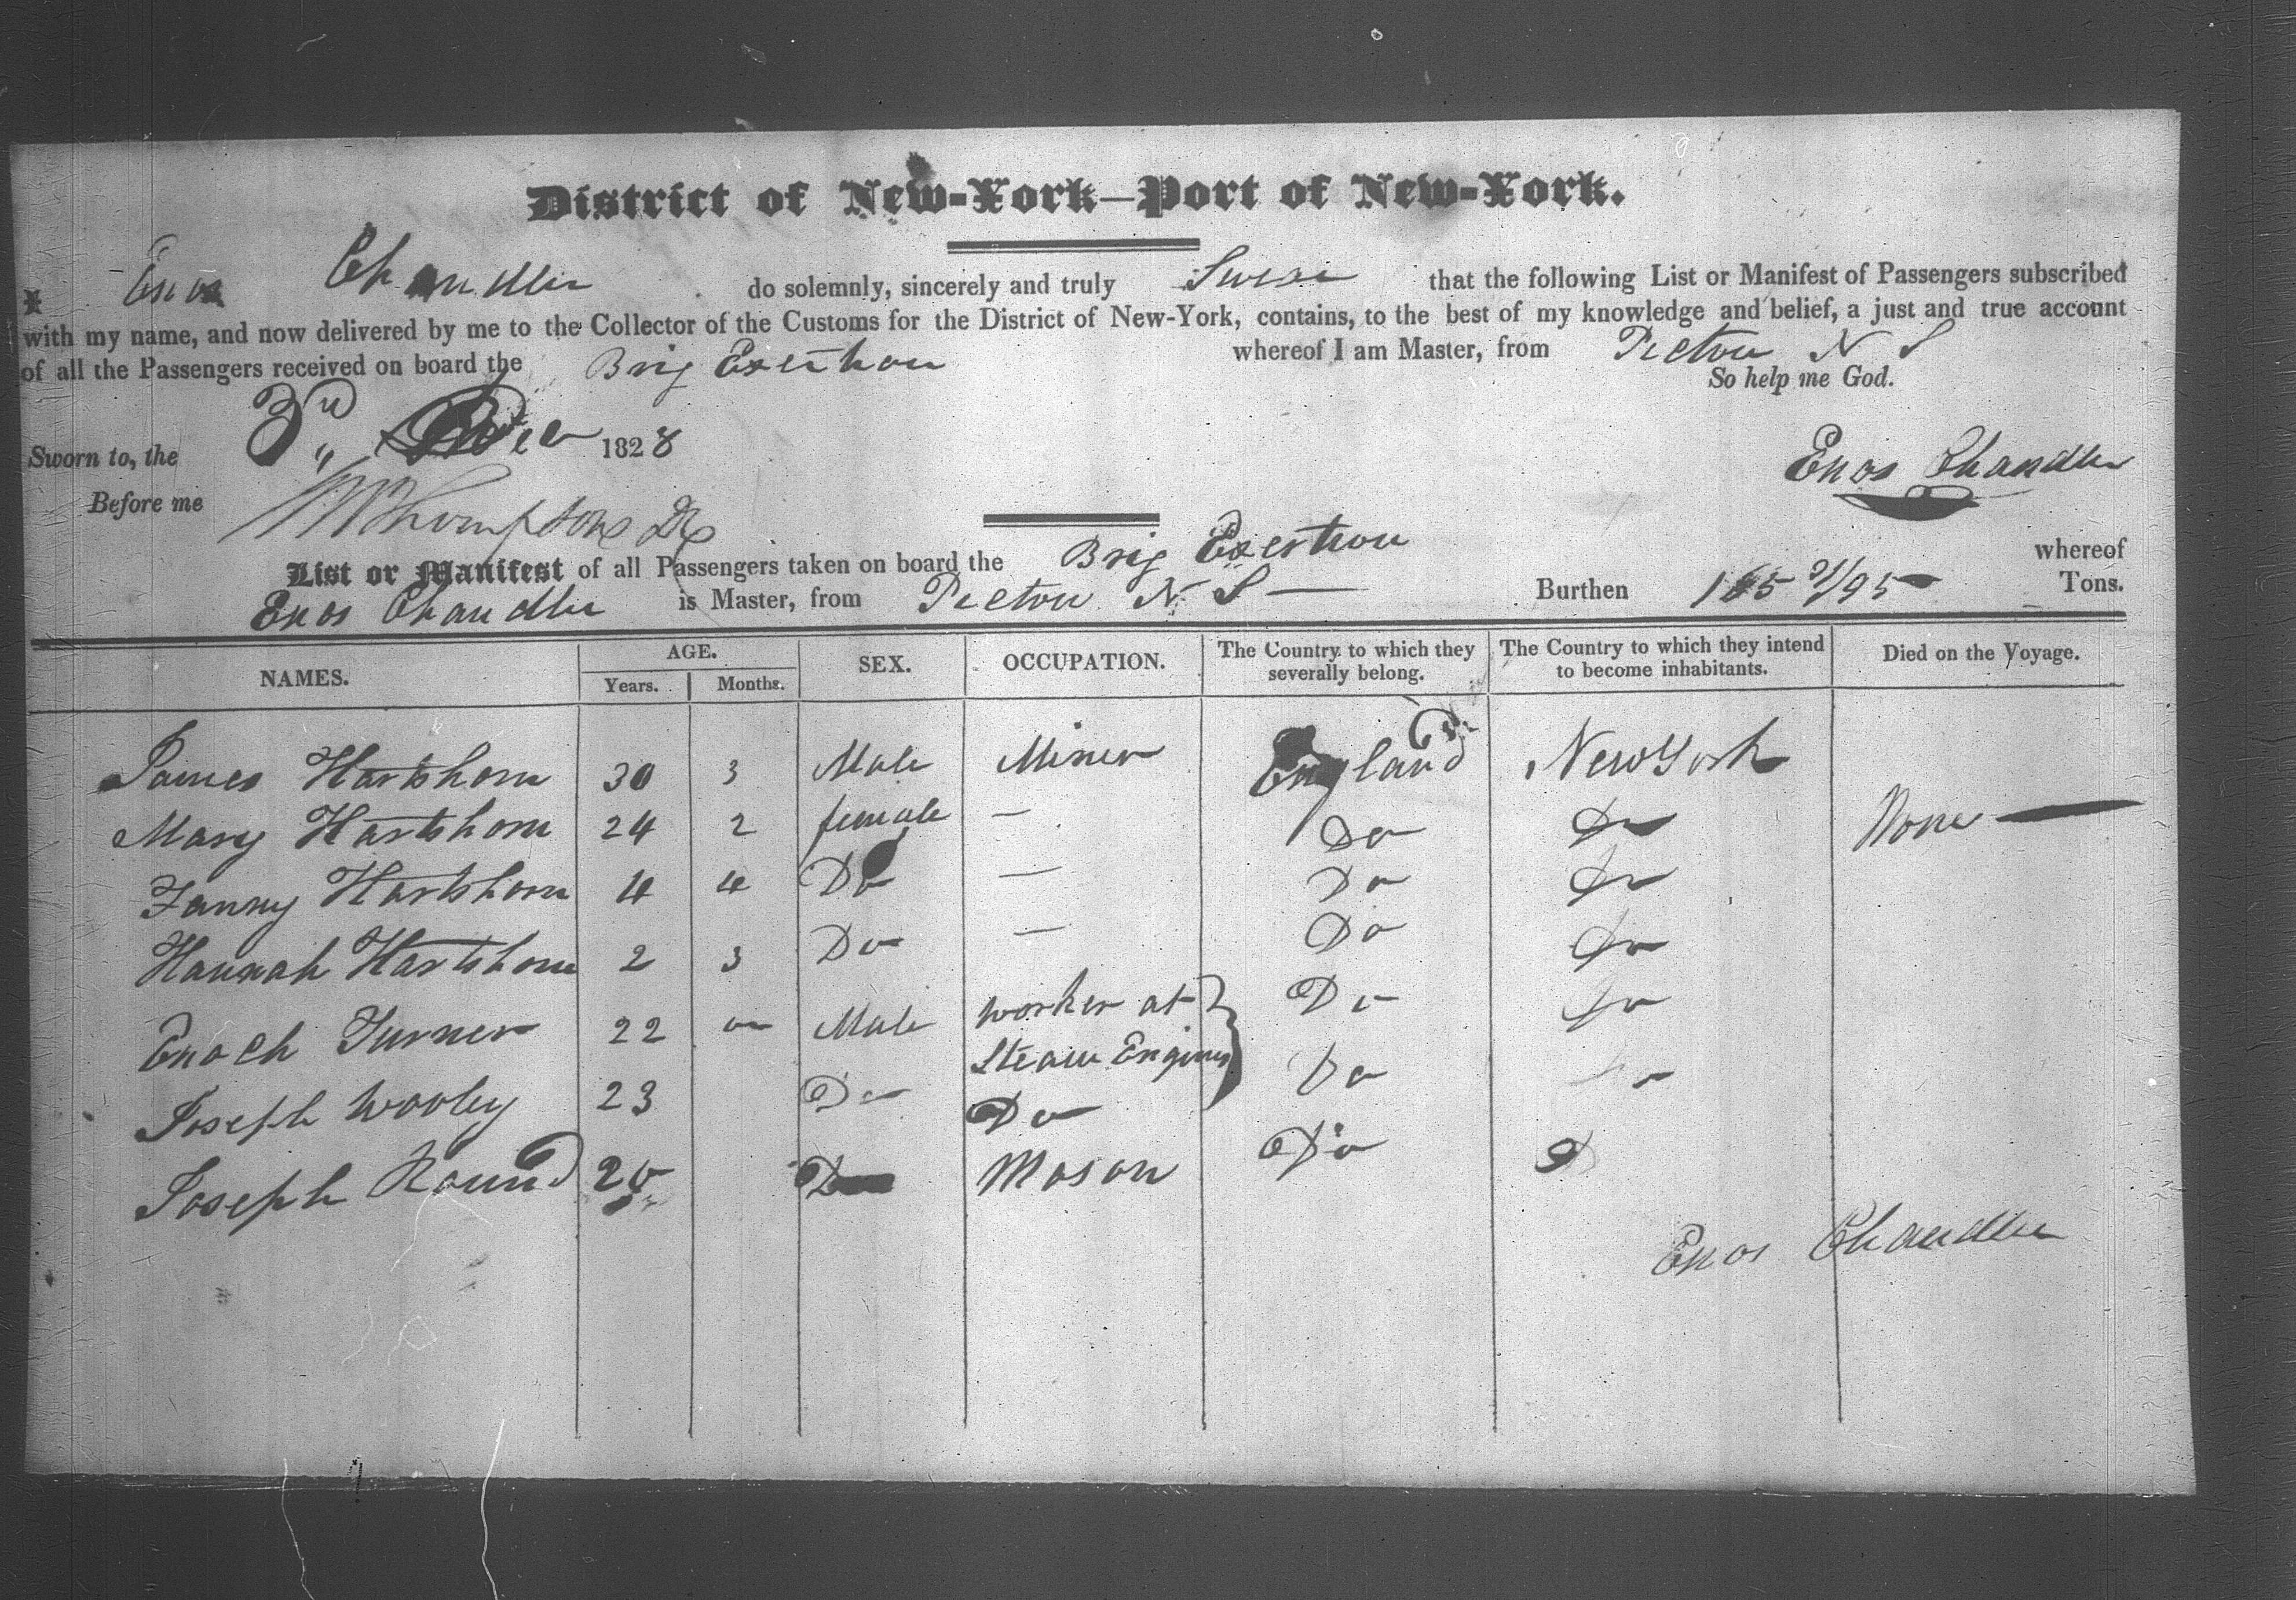 District of New-York—Port of New-York.
I Enos Chandler do solemnly, sincerely and truly Swear that the following List or Manifest of Passengers subscribed
with my name, and now delivered by me to the Collector of the Customs for the District of New-York, contains, to the best of my knowledge and belief, a just and true account
of all the Passengers received on board the Brig Exertion whereof I am Master, from Pictou N S
So help me God.
Sworn to, the 3rd Dec 1828
Enos Chandler
Before me Thompson
List or Manifest of all Passengers taken on board the Brig Exertion whereof
Enos Chandler is Master, from Pictou N S — Burthen 165 91/95 Tons.
NAMES. AGE. Years. Months. SEX. OCCUPATION. The Country to which they severally belong. The Country to which they intend to become inhabitants. Died on the Voyage.
James Hartshorn 30 3 Male Miner England New York
Mary Hartshorn 24 2 female — Do Do None —
Fanny Hartshorn 4 4 Do — Do Do
Hannah Hartshorn 2 3 Do — Do Do
Enoch Turner 22 Male worker at Steam Engines Do Do
Joseph Wooley 23 Do Do Do Do
Joseph Round 20 Do Mason Do D
Enos Chandler